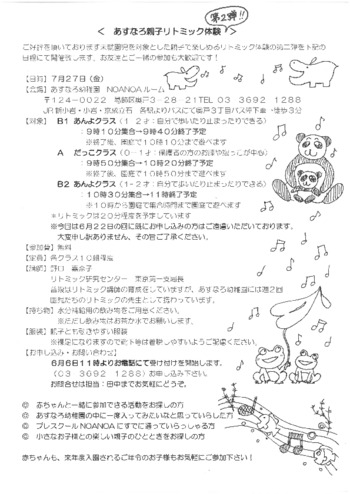 第2弾!!
< あすなろ親子リトミック体験 >
ご好評を頂いております未就園児を対象とした親子で楽しめるリトミック体験の第二弾を下記の
日程にて開催致します。お友達とご一緒の参加も大歓迎です!
【日時】7月27日(金)
【会場】あすなろ幼稚園 NOANOAルーム
〒124-0022 葛飾区奥戸3-28-21 TEL 03 3692 1288
JR新小岩・小岩・京成立石 各駅よりバスにて奥戸3丁目バス停下車 徒歩3分
【対象】 B1 あんよクラス(1・2才:自分で歩いたり止まったりできる)
:9時10分集合→9時40分終了予定
※終了後、園庭で10時10分まで遊べます
A だっこクラス(0~1才:保護者の方のお膝や抱っこが中心)
:9時50分集合→10時20分終了予定
※終了後、園庭で10時50分まで遊べます
B2 あんよクラス(1・2才:自分で歩いたり止まったりできる)
:10時30分集合→11時終了予定
※10時から園庭で集合時間まで園庭で遊べます
*リトミックは20分程度を予定しています
※今回は6月22日の回に既にお申し込みの方はご遠慮いただいております。
大変申し訳ありません、その旨ご了承ください。
【参加費】無料
【定員】各クラス10組程度
【講師】
リトミック研究センター 東京第一支局長
普段はリトミック講師の養成をしていますが、あすなろ幼稚園には週2回
園児たちのリトミックの先生として携わっています。
【持ち物】水分補給用の飲み物をご用意ください。
※ただし飲み水はお茶か水でお願いします。
【服装】親子とも動きやすい服装
※裸足になりますので靴下等は着脱しやすいようご配慮ください。
【お申し込み・お問い合わせ】
6月6日11時よりお電話にて受け付けを開始します。
(03 3692 1288) お申し込み下さい。
お問合せは担当:田中までお気軽にどうぞ。
◎ 赤ちゃんと一緒に参加できる活動をお探しの方
◎ あすなろ幼稚園の中に一度入ってみたいなと思っていらした方
◎ プレスクールNOANOAにすでに通っていらっしゃる方
◎ 小さなお子様との楽しい親子のひとときをお探しの方
赤ちゃんも、来年度入園されるご年令のお子様もお気軽にご参加下さい!